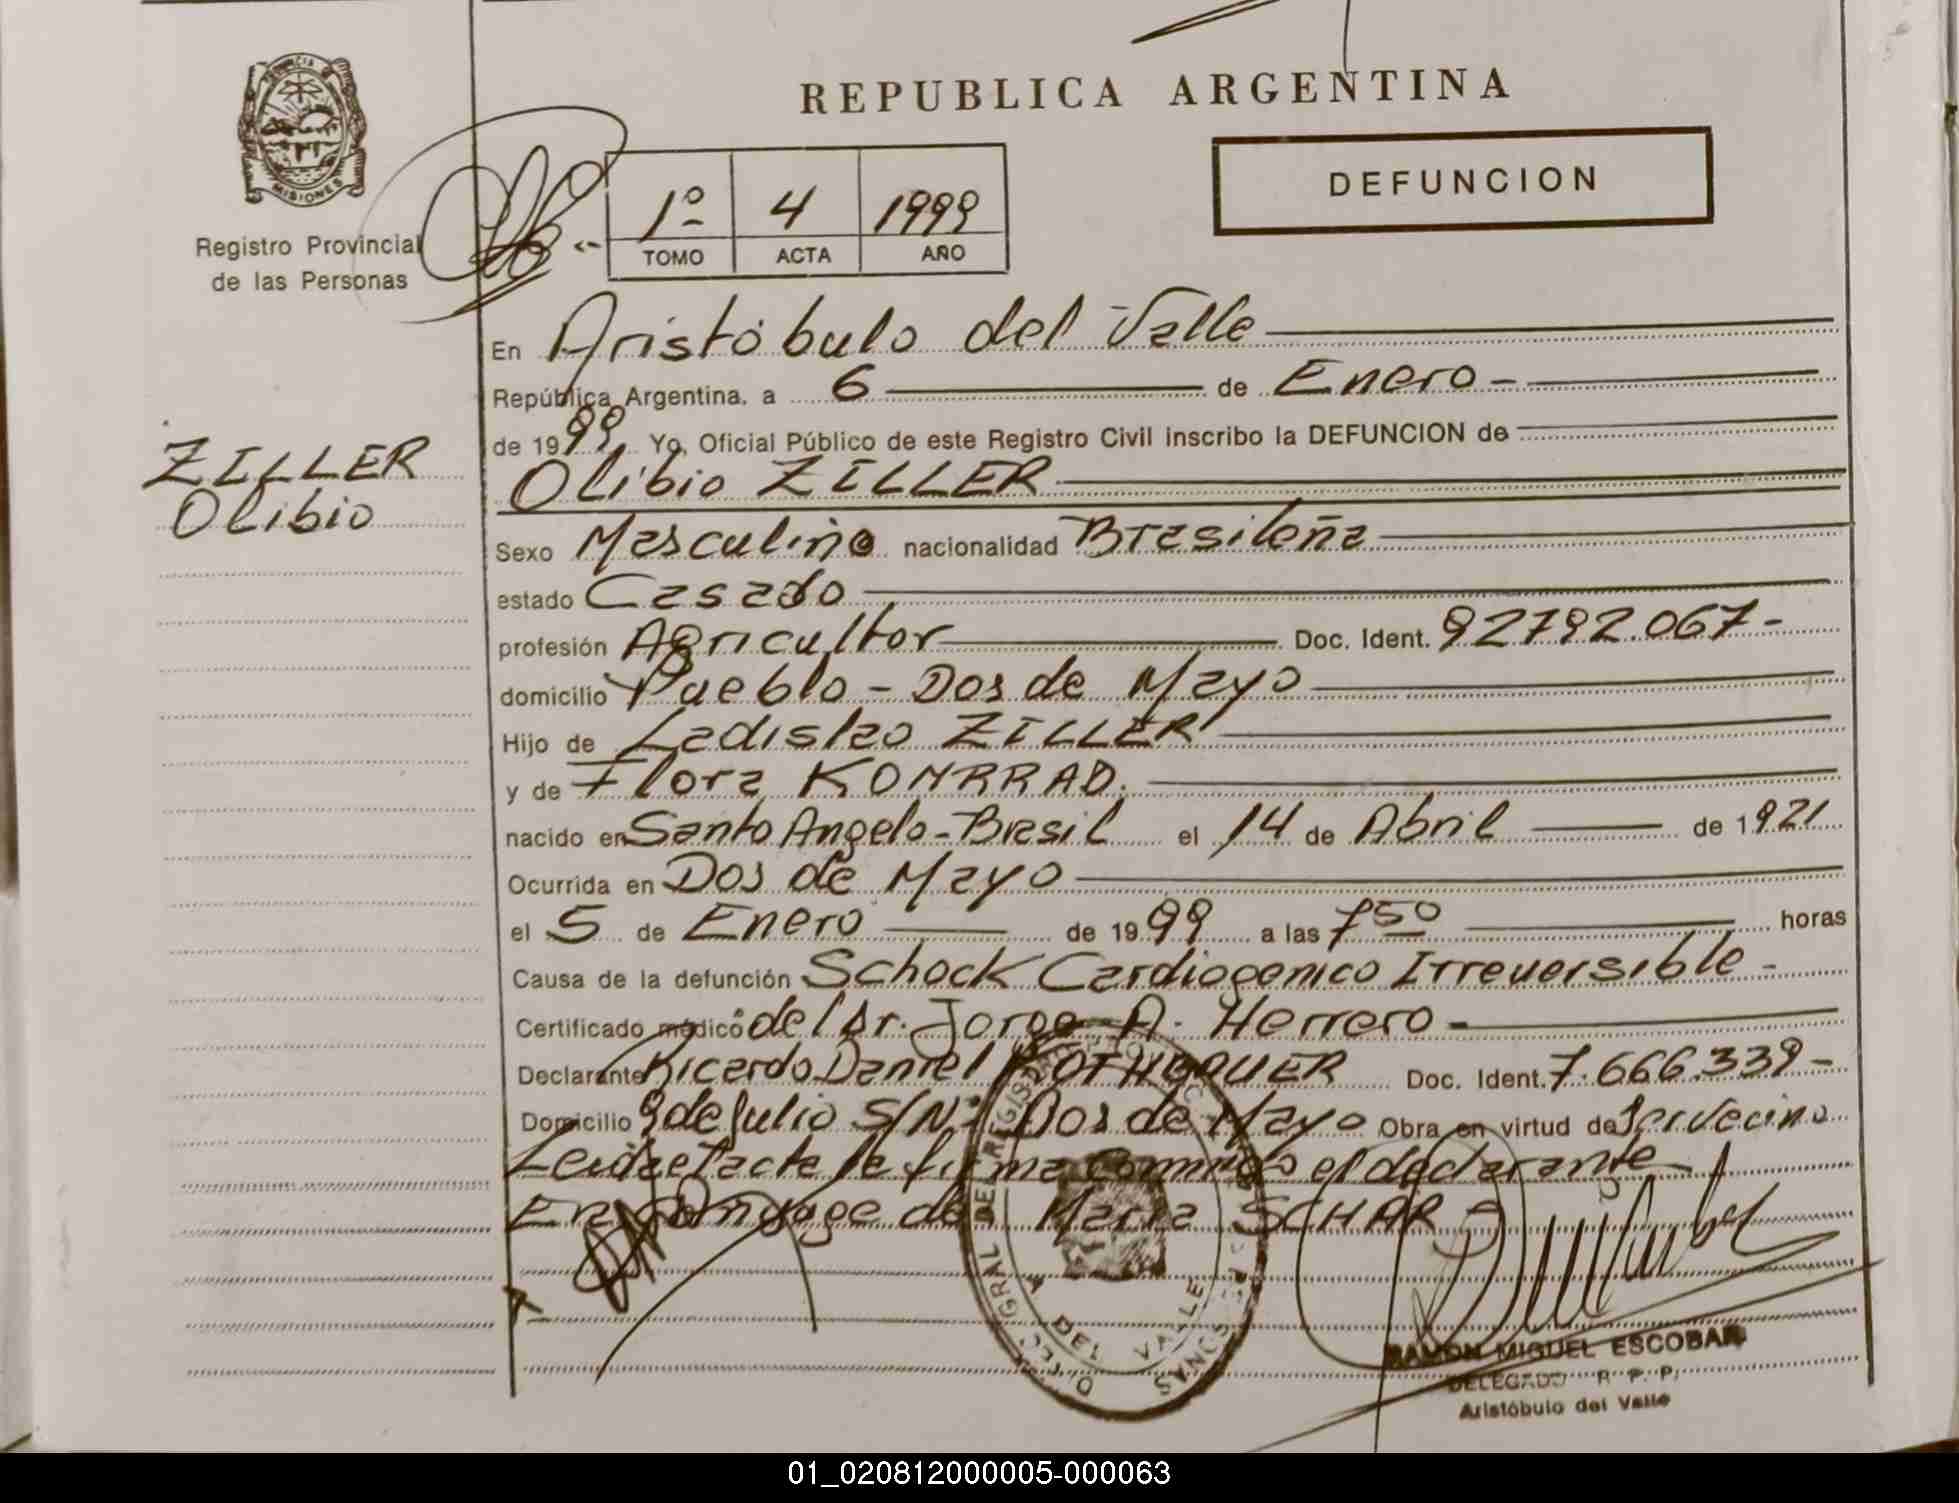 PROVINCIA D
MISIONES
Registro Provincial
de las Personas
REPUBLICA ARGENTINA
DEFUNCION
1º 4 1999
TOMO ACTA AÑO
ZILLER
Olibio
En Aristóbulo del Valle
República Argentina, a 6 de Enero -
de 1999. Yo, Oficial Público de este Registro Civil inscribo la DEFUNCION de
Olibio ZILLER
Sexo Masculino nacionalidad Brasileña
estado Casado
profesión Agricultor Doc. Ident. 92792.067-
domicilio Pueblo - Dos de Mayo
Hijo de Ladislao ZILLER
y de Flora KONRRAD.
nacido en Santo Angelo - Brasil el 14 de Abril de 1921
Ocurrida en Dos de Mayo
el 5 de Enero de 1999 a las 7 50 horas
Causa de la defunción Schock Cardiogenico Irreversible -
Certificado médico del Dr. Jorge A. Herrero -
Declarante Ricardo Daniel Doc. Ident. 7.666.339-
Domicilio 9 de Julio S/Nº Dos de Mayo Obra en virtud de Ser Vecino
Leida el acta la firma conmigo el declarante
Enconyuge de: Maria SCHAR -
DEL VALLE
RAMON MIGUEL ESCOBAR
DELEGADO R. P. P.
Aristóbulo del Valle
01_020812000005-000063